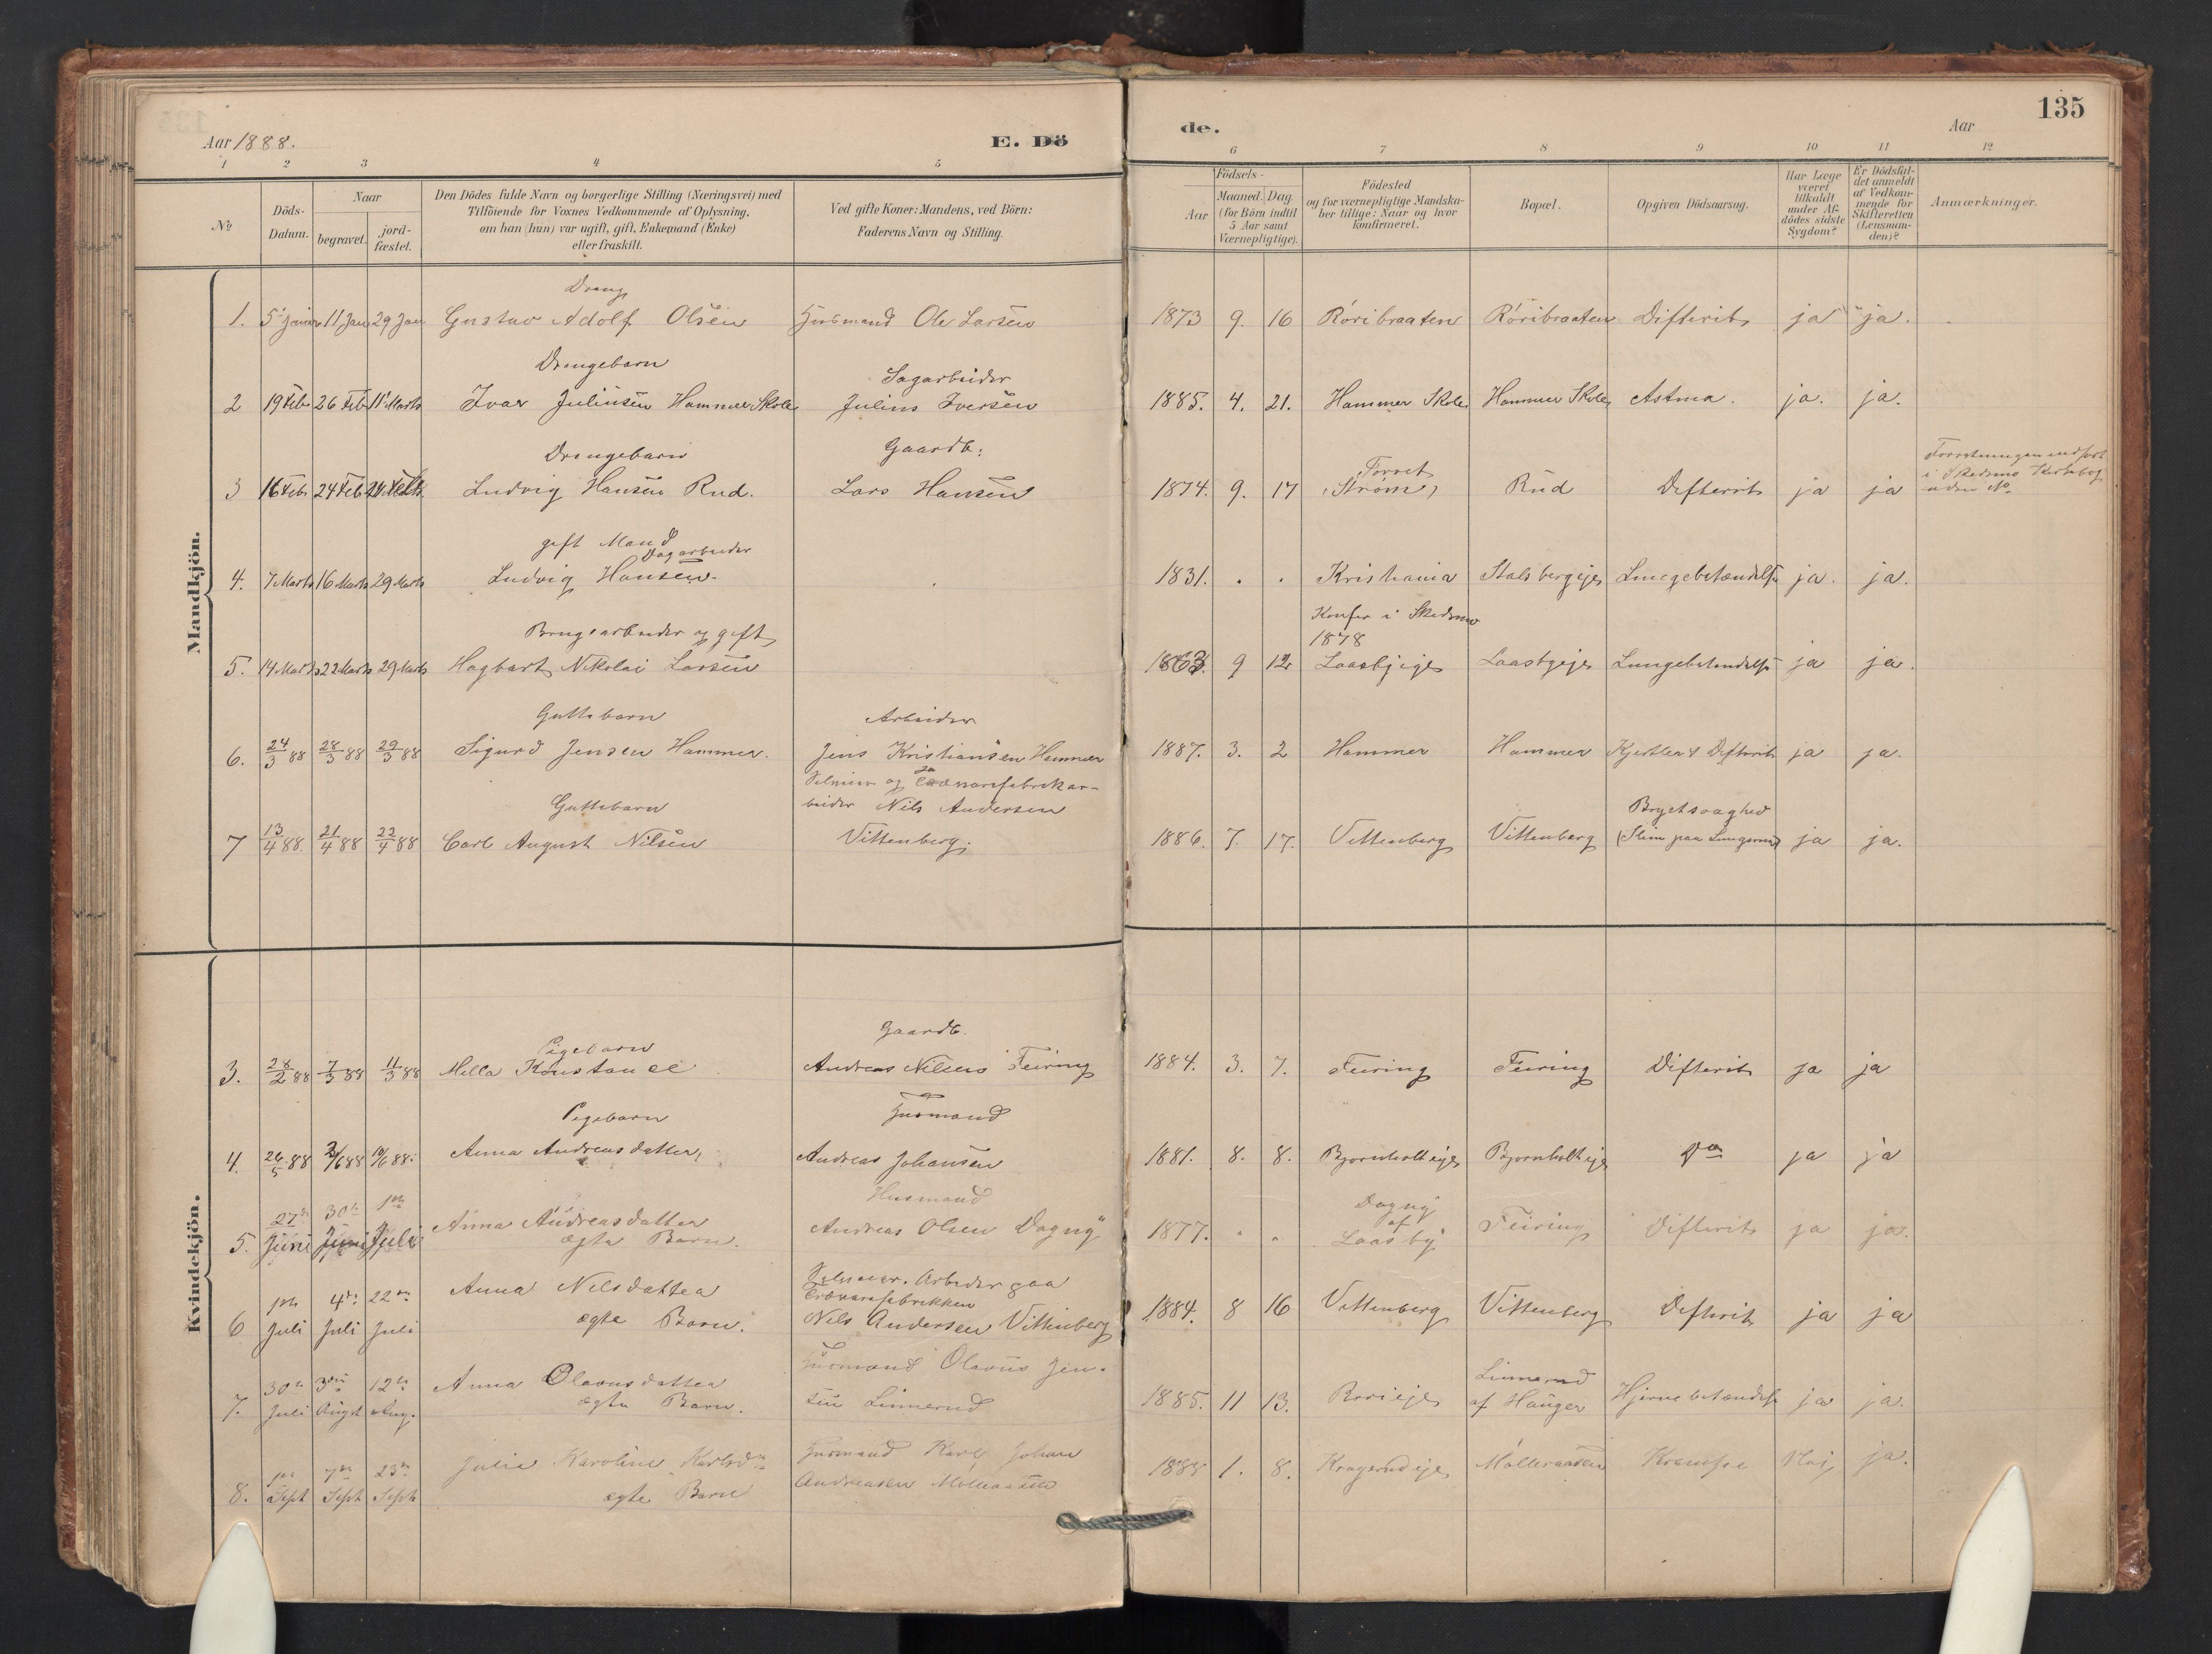 Aar 1888.
E. Dö
de.
Aar
135
1 2 3 4 5
6 7 8 9 10 11 12
No
Döds-Datum.
Naar
begravet.
jord-fæstet.
Den Dödes fulde Navn og borgerlige Stilling (Næringsvei) med
Tilföiende for Voxnes Vedkommende af Oplysning,
om han (hun) var ugift, gift, Enkemand (Enke)
eller fraskilt.
Ved gifte Koner: Mandens, ved Börn:
Faderens Navn og Stilling.
Födsels-
Aar
Maaned. Dag.
(for Börn indtil
5 Aar samt
Værnepligtige).
Födested
og for værnepligtige Mandska-
ber tillige: Naar og hvor
konfirmeret.
Bopæl.
Opgiven Dödsaarsag.
Har Læge
været
tilkaldt
under Af-
dödes sidste
Sygdom?
Er Dödsfal-
det anmeldt
af Vedkom-
mende for
Skifteretten
(Lensman-
den)?
Anmærkninger.
Mandkjön.
Dreng
1. 5 Januar 11 Jan 29 Jan Gustav Adolf Olsen Husmand Ole Larsen 1873 9. 16 Röribraaten Röribraaten Difterit ja ja.
Drengebarn
Sagarbeider
2 19 Feb 26 Feb 11 Marts Ivar Juliusen Hammer Skole Julius Iversen 1885. 4. 21. Hammer Skole Hammer Skole Astma. ja. ja.
Drengebarn
Gaardb:
3 16 Feb 24 Feb Ludvig Hansen Rud. Lars Hansen 1874. 9. 17 Torret Strøm, Rud Difterit ja ja
i Skedsmo Kirkebog
uden No
gift Mand
Dagarbeider
4. 7 Marts 16 Marts 29 Marts Ludvig Hansen. 1831. . . Kristiania Stalsbergeje Lungebetændelse ja. ja.
Brugsarbeider og gift
Konfir i Skedsmo
1878
5. 14 Marts 22 Marts 29 Marts Hagbart Nikolai Larsen 1863. 9 12 Laasbyeje Laasbyeje Lungebetændelse ja ja.
Guttebarn
Arbeider
6. 24/3 88 28/3 88 29/3 88 Sigurd Jensen Hammer. Jens Kristiansen Hammer 1887. 3. 2 Hammer Hammer Kjertler & Difterit ja ja.
Selveier og Trævarefabrikar-
beider Nils Andersen
Guttebarn
7 13/4 88. 21/4 88 22/4 88 Carl August Nilsen Vittenberg. 1886. 7. 17. Vittenberg Vittenberg Brystsvaghed (Slim paa Lungerne) ja ja.
Kvindekjön.
Gaardb.
Pigebarn
3. 28/2 88 7/3 88 11/3 88 Milla Konstance Andreas Nilsens Feiring 1884. 3. 7. Feiring Feiring Difterit ja ja
Pigebarn
Husmand
4. 26/5 88 3/6 88 10/6 88. Anna Andreasdatter, Andreas Johansen 1881. 8. 8. Bjornholteje Bjornholteje Do ja ja
Husmand
5. 27de Juni 30te Juni 1ste Juli Anna Andreasdatter Andreas Olsen Dagny 1877. Dagny af Laasby Feiring Difterit ja ja.
ægte Barn.
Selveier. Arbeider paa
Trævarefabrikken
6 1ste Juli 4de Juli 22de Juli Anna Nilsdatter Nils Andersen Vittenberg 1884. 8 16 Vittenberg Vittenberg Difterit ja ja
ægte Barn.
7. 30te Juli 3die Augst 12te Aug. Anna Olavusdatter Husmand Olavus Jen-
ægte Barn. sen Linnerud 1885. 11 13. Rorieje Linnerud af Hauger Hjernebetændelse ja ja.
8. 1ste Sept 7de Sept 23de Sept Julia Karoline Karlsdtr Husmand Karl Johan
ægte Barn Andreasen Mølleraasen 1888 1. 8. Kragerudeje Mölleraasen Krampe Nei, ja.